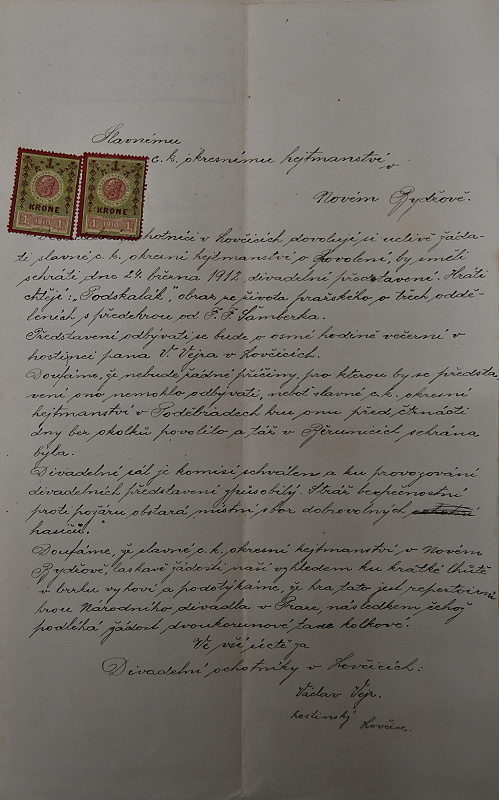 Slavnému
c. k. okresnímu hejtmanství
v
Novém Bydžově.
1 1
KRONE KRONE
1 1910 1 1 1910 1
ochotníci v Lovčicích dovolují si uctivě žáda-
ti, slavné c. k. okresní hejtmanství o povolení, by směli
sehráti, dne 24. března 1912, divadelní představení. Hráti
chtějí: „Podskalák" obraz ze života pražského o třech oddě-
leních, s předehrou od F. F. Šamberka.
Představení odbývati se bude o osmé hodině večerní v
hostinci pana V. Vejra v Lovčicích.
Doufáme, že nebude řádné příčiny, pro kterou by se předsta-
vení ono nemohlo odbývati, neboť slavné c. k. okresní
hejtmanství v Poděbradech hru onu před čtrnácti
dny bez okolků povolilo a též v Běrunicích sehrána
byla.
Divadelní sál je komisí schválen a ku provozování
divadelních představení způsobilý. Stráž bezpečnostní
proti požáru obstará místní sbor dobrovolných
hasičů."
Doufáme, že slavné c. k. okresní hejtmanství v Novém
Bydžově, laskavě žádosti naší vzhledem ku krátké lhůtě
v brzku vyhoví a podotýkáme, že hra tato jest repertoirní
hrou Národního divadla v Praze, následkem čehož
podléhá žádost dvoukorunové taxe kolkové.
Ve vší úctě za
Divadelní ochotníky v Lovčicích:
Václav Vejr.
hostinský
Lovčice.